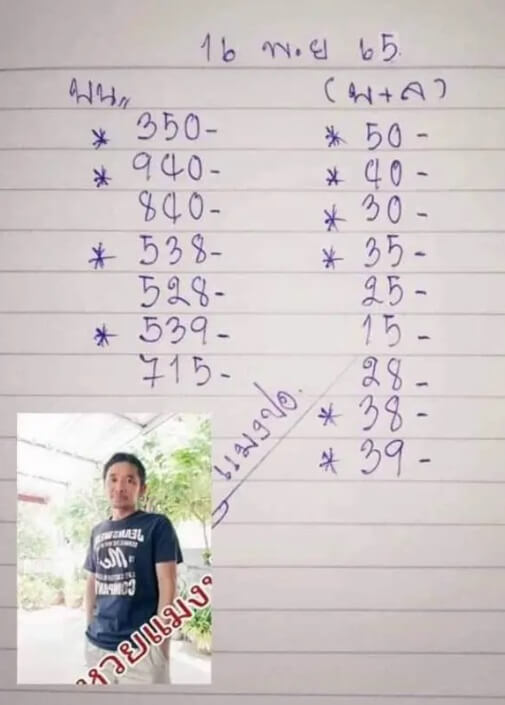 16 พ.ย 65.
บน,, (บ+ล)
* 350- * 50-
* 940- * 40-
840- * 30-
* 538- * 35-
528- 25-
* 539- 15-
715- 28-
* 38-
* 39-
แมงปอ.
JEANSWEAR
Me
COMPANY
หวยแมงป